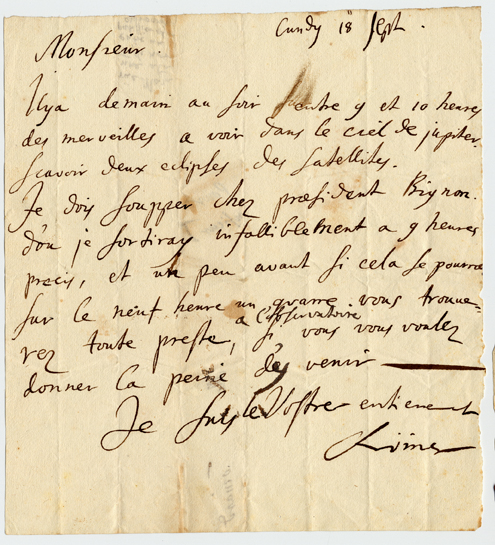 Lundy 18 Sept.
Monsieur.
Il y a demain au soir entre 9 et 10 heures
des merveilles a voir dans le ciel de jupiter.
scavoir deux eclipses des satellites.
Je dois soupper chez president Bignon.
d'ou je sortiray infalliblement a 9 heures
precis, et un peu avant si cela se pourra
sur le neuf heure un quarre vous trouve=
a l'observatoire
rez toute preste, si vous vous voulez
donner la peine d'y venir
Je suis le Vostre entierement
Römer